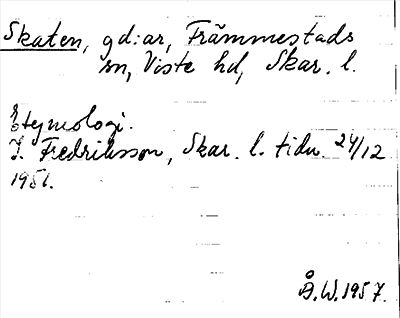 Skaten, gd:ar, Främmestads
sn, Viste hd, Skar. l.
Etymologi.
I. Fredriksson, Skar. l. tidn. 24/12
1951.
Å.W.1957.